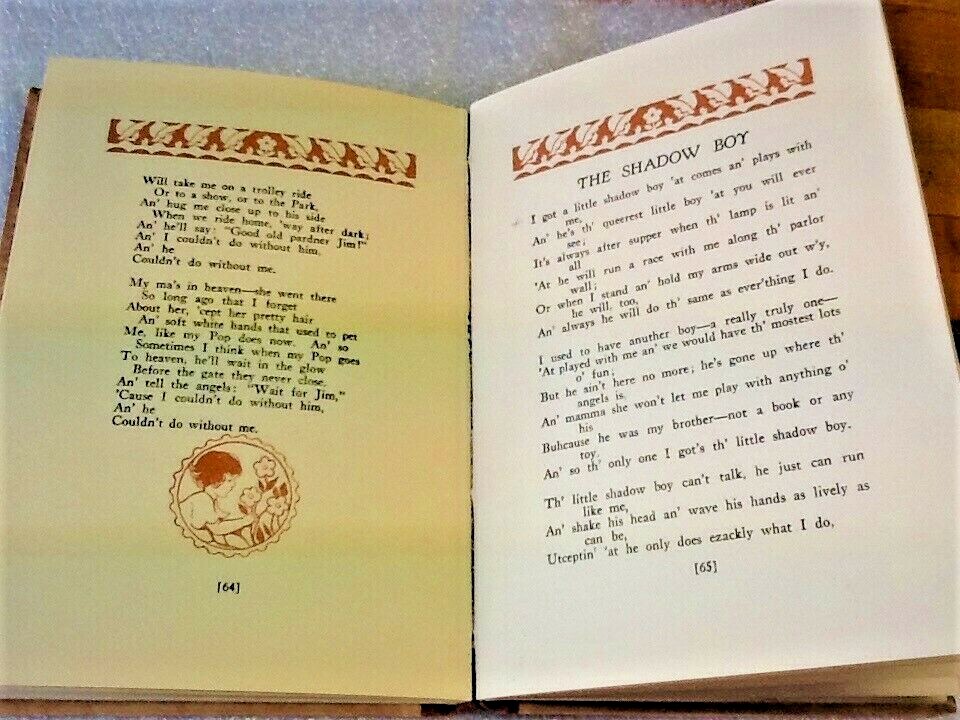 Will take me on a trolley ride
Or to a show, or to the Park,
An' hug me close up to his side
When we ride home, 'way after dark;
An' he'll say: "Good old pardner Jim!"
An' I couldn't do without him,
An' he
Couldn't do without me.
My ma's in heaven—she went there
So long ago that I forget
About her, 'cept her pretty hair
An' soft white hands that used to pet
Me, like my Pop does now. An' so
Sometimes I think when my Pop goes
To heaven, he'll wait in the glow
Before the gate they never close.
An' tell the angels: "Wait for Jim,"
'Cause I couldn't do without him,
An' he
Couldn't do without me.
[64]
THE SHADOW BOY
I got a little shadow boy 'at comes an' plays with
me,
An' he's th' queerest little boy 'at you will ever
see;
It's always after supper when th' lamp is lit an'
all
'At he will run a race with me along th' parlor
wall;
Or when I stand an' hold my arms wide out w'y,
he will, too,
An' always he will do th' same as ever'thing I do.
I used to have anuther boy—a really truly one—
'At played with me an' we would have th' mostest lots
o' fun;
But he ain't here no more; he's gone up where th'
angels is,
An' mamma she won't let me play with anything o'
his
Buhcause he was my brother—not a book or any
toy,
An' so th' only one I got's th' little shadow boy.
Th' little shadow boy can't talk, he just can run
like me,
An' shake his head an' wave his hands as lively as
can be,
Utceptin' 'at he only does ezackly what I do,
[65]